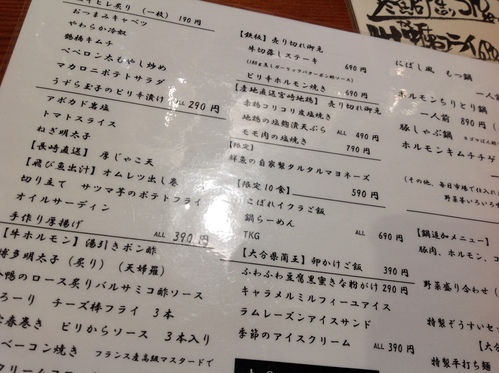 イヒレ炙り (一枚) 190円
おつまみキャベツ
やわらか冷奴
鶴橋キムチ
ペペロン太もやし炒め
マカロニポテトサラダ
うずら玉子のピリ辛漬け ALL 290円
アボカド岩塩
トマトスライス
ねぎ明太子
【長崎直送】 厚じゃこ天
【飛び魚出汁】 オムレツ出し巻
切り立て サツマ芋のポテトフライ
オイルサーディン
手作り厚揚げ ALL 390円
【牛ホルモン】 湯引きポン酢
博多明太子 (炙り) (天婦羅)
鴨のロース炙りバルサミコ酢ソース
ろーり チーズ棒フライ 3本
春巻き ピリからソース 3本入り
ベーコン焼き フランス産高級マスタードで
【鉄板】 売り切れ御免
牛切落しステーキ 690円
ピリ辛ホルモン焼き 690円
【産地直送宮崎地鶏】 売り切れ御免
赤鶏コリコリ皮塩焼き
地鶏の塩麹漬天ぷら ALL 490円
モモ肉の塩焼き 790円
【限定】
鮮魚の自家製タルタルマヨネーズ 590円
【限定10食】
こぼれイクラご飯
鍋らーめん
TKG ALL 690円
【大分県蘭王】 卵かけご飯 390円
ふわふわ豆腐黒蜜きな粉がけ 290円
キャラメルミルフィーユアイス
ラムレーズンアイスサンド
季節のアイスクリーム ALL 390円
にぼし風 もつ鍋
一人前
ホルモンちりとり鍋
一人前 890円
豚しゃぶ鍋
ホルモンキムチチゲ
(その他、毎日市場で仕入
【鍋追加メニュー】
豚肉、ホルモン、
野菜盛り合わせ
特製ぞうすいセ
【大分
特製平打ち麺